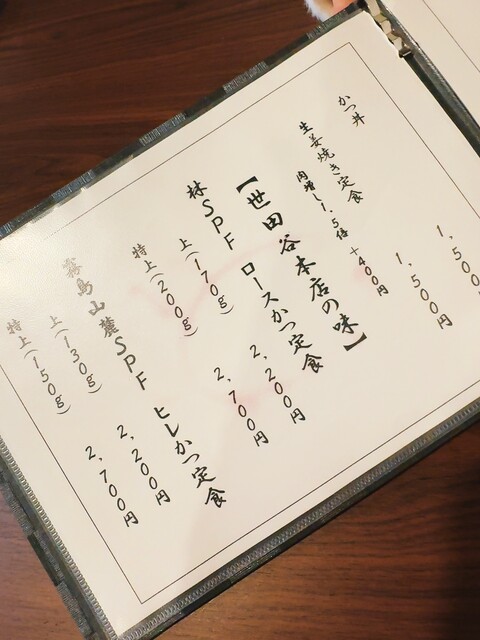 かつ丼
1,500
生姜焼き定食
1,500円
肉増し1.5倍 +400円
【世田谷本店の味】
林SPF ロースかつ定食
上(170g) 2,200円
特上(200g) 2,700円
霧島山麓SPF ヒレかつ定食
上(130g) 2,200円
特上(150g) 2,700円